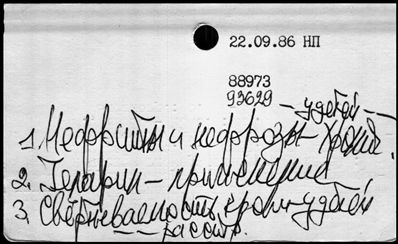 22.09.86 НП
88973
93629
- у детей -
1. Нефриты и нефрозы - хронич.
2. Гепарин - применение
3. Свёртываемость крови - у детей
- - расстр.